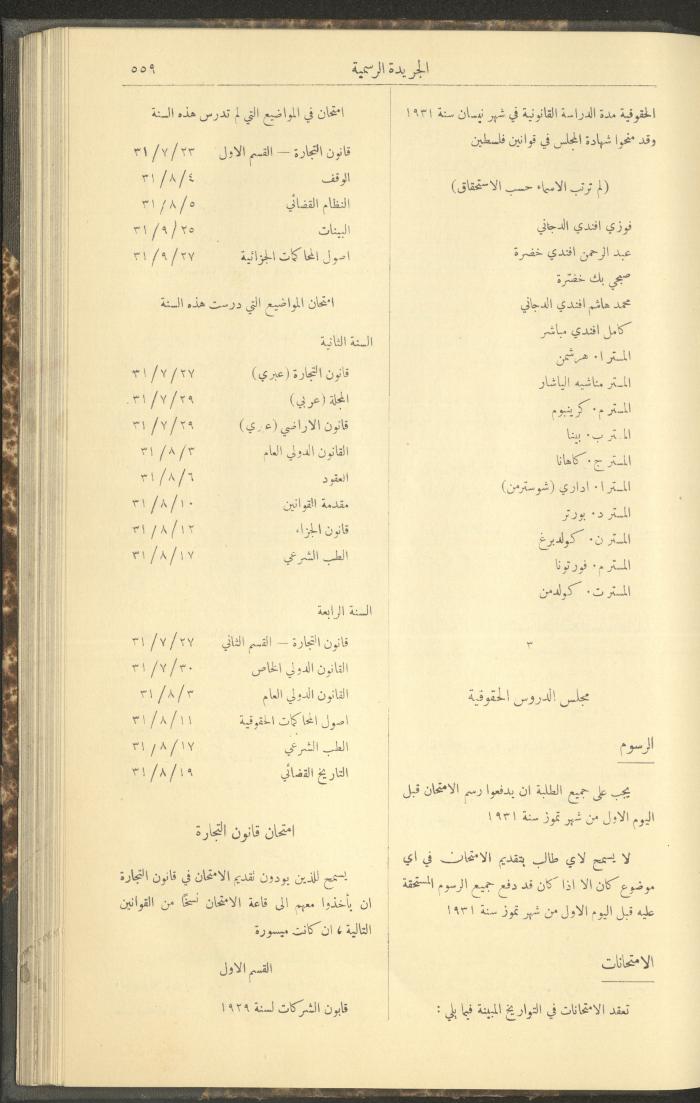 الجريدة الرسمية ٥٥٩
الحقوقية مدة الدراسة القانونية في شهر نيسان سنة ١٩٣١
وقد منحوا شهادة المجلس في قوانين فلسطين
(لم ترتب الاسماء حسب الاستحقاق)
فوزي افندي الدجاني
عبد الرحمن افندي خضرة
صبحي بك خضرة
محمد هاشم افندي الدجاني
كامل افندي مباشر
المستر ا. هرشمن
المستر مناشيه الياشار
المستر م. كرينبوم
المستر ب. بينا
المستر ج. كاهانا
المستر ا. اداري (شوسترمن)
المستر د. بورتر
المستر ن. كولدبرغ
المستر م. فورتونا
المستر ت. كولدمن
٣
مجلس الدروس الحقوقية
الرسوم
يجب على جميع الطلبة ان يدفعوا رسم الامتحان قبل
اليوم الاول من شهر تموز سنة ١٩٣١
لا يسمح لاي طالب بتقديم الامتحان في اي
موضوع كان الا اذا كان قد دفع جميع الرسوم المستحقة
عليه قبل اليوم الاول من شهر تموز سنة ١٩٣١
الامتحانات
تعقد الامتحانات في التواريخ المبينة فيما يلي :
امتحان في المواضيع التي لم تدرس هذه السنة
قانون التجارة — القسم الاول ٢٣/ ٧/ ٣١
الوقف ٤/ ٨/ ٣١
النظام القضائي ٥/ ٨/ ٣١
البينات ٢٥/ ٩/ ٣١
اصول المحاكمات الجزائية ٢٧/ ٩/ ٣١
امتحان المواضيع التي درست هذه السنة
السنة الثانية
قانون التجارة (عبري) ٢٧/ ٧/ ٣١
المجلة (عربي) ٢٩/ ٧/ ٣١
قانون الاراضي ٢٩/ ٧/ ٣١
القانون الدولي العام ٣/ ٨/ ٣١
العقود ٦/ ٨/ ٣١
مقدمة القوانين ١٠/ ٨/ ٣١
قانون الجزاء ١٢/ ٨/ ٣١
الطب الشرعي ١٧/ ٨/ ٣١
السنة الرابعة
قانون التجارة — القسم الثاني ٢٧/ ٧/ ٣١
القانون الدولي الخاص ٣٠/ ٧/ ٣١
القانون الدولي العام ٣/ ٨/ ٣١
اصول المحاكمات الحقوقية ١١/ ٨/ ٣١
الطب الشرعي ١٧/ ٨/ ٣١
التاريخ القضائي ١٩/ ٨/ ٣١
امتحان قانون التجارة
يسمح للذين يودون تقديم الامتحان في قانون التجارة
ان يأخذوا معهم الى قاعة الامتحان نسخًا من القوانين
التالية ، ان كانت ميسورة
القسم الاول
قانون الشركات لسنة ١٩٢٩